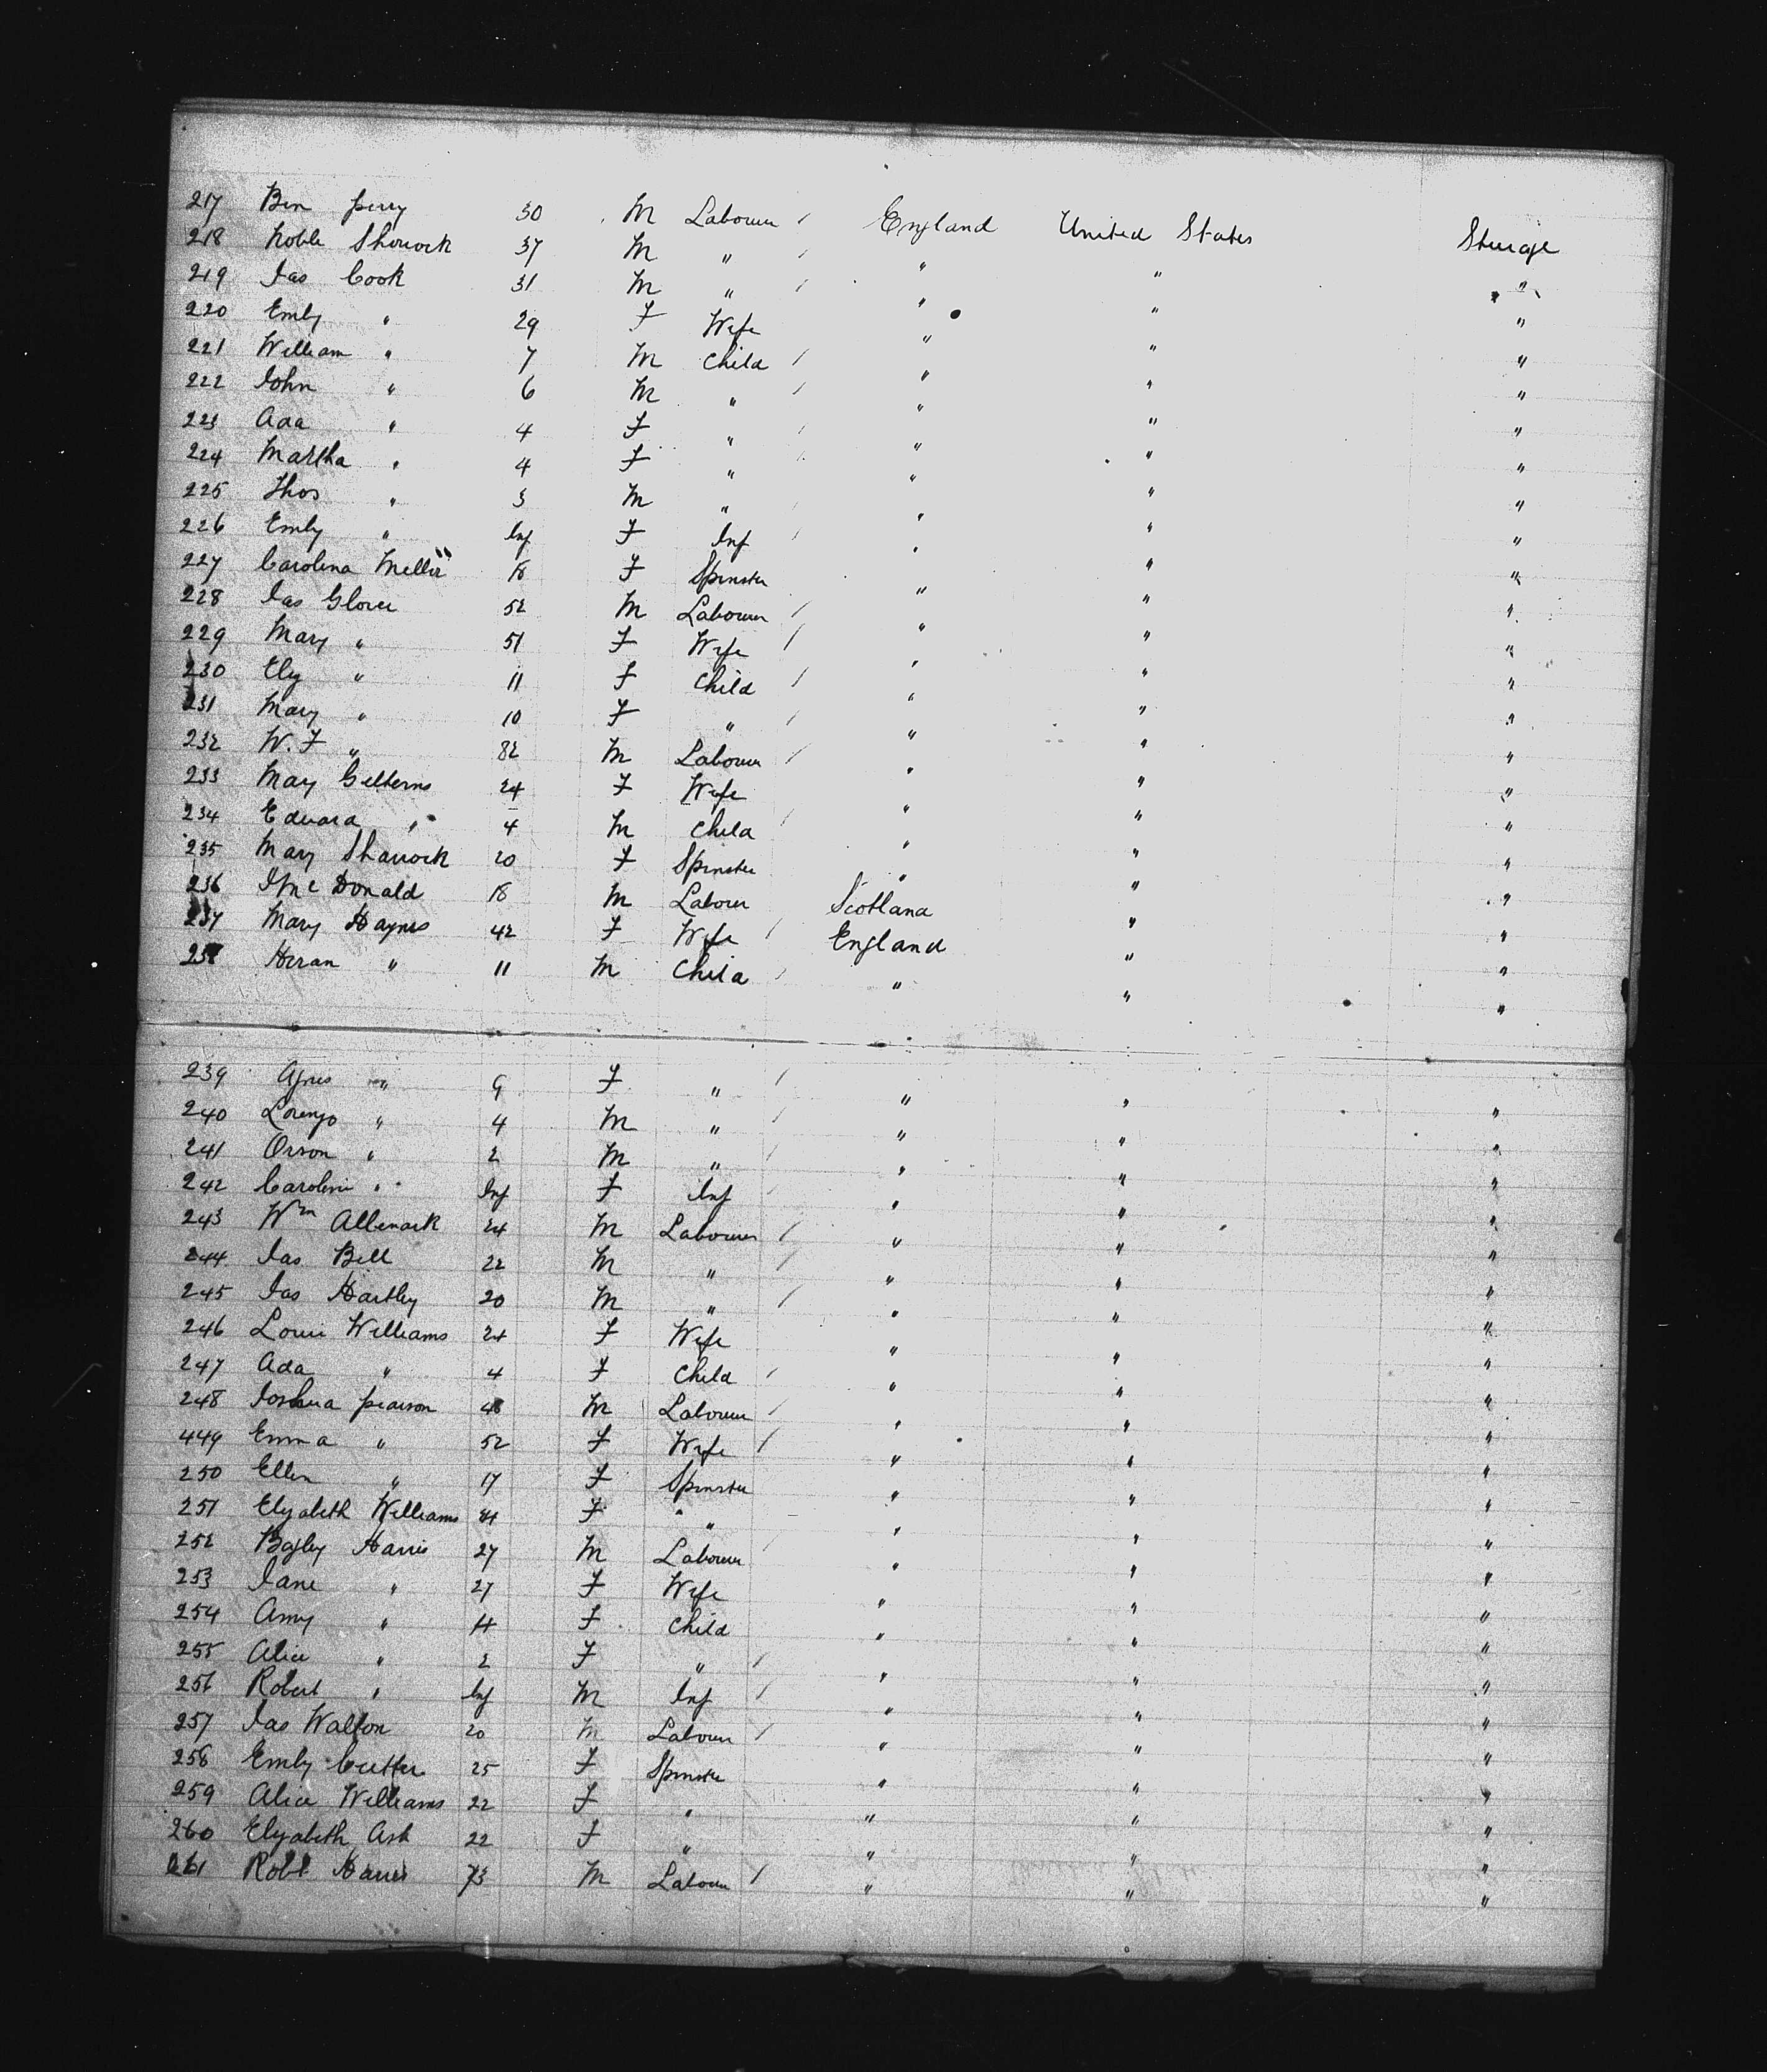 217 Ben perry 30 M Labourer / England United States Steerage
218 Noble Shorrock 37 M " / " " "
219 Jas Cook 31 M " / " " "
220 Emly " 29 F Wife " " "
221 William " 7 M Child / " " "
222 John " 6 M " / " " "
223 Ada " 4 F " / " " "
224 Martha " 4 F " / " " "
225 Thos " 3 M " / " " "
226 Emly " Inf F Inf / " " "
227 Carolina 18 F Spinster " " "
228 Jas Glover 52 M Labourer / " " "
229 Mary " 51 F Wife / " " "
230 Ely " 11 F Child / " " "
231 Mary " 10 F " / " " "
232 W. F " 82 M Labourer / " " "
233 May 24 F Wife " " "
234 Edward " 4 M Child / " " "
235 Mary Sharrock 20 F Spinster " " "
236 McDonald 18 M Labour Scotland " "
237 Mary Haynes 42 F Wife / England " "
238 Hiran " 11 M Child / " " "
239 Agnes " 9 F " / " " "
240 Lorenzo " 4 M " / " " "
241 Orson " 2 M " / " " "
242 Carolini " Inf F Inf / " " "
243 Wm 24 M Labourer / " " "
244 Jas Bell 22 M " / " " "
245 Jas Hartley 20 M " / " " "
246 Louie Williams 24 F Wife " " "
247 Ada " 4 F Child / " " "
248 Joshua pearson 48 M Labourer / " " "
449 Emma " 52 F Wife / " " "
250 Ellen " 17 F Spinster " " "
251 Elyabeth Williams F " " " "
252 Bagley Harris 27 M Labourer / " " "
253 Jane " 27 F Wife " " "
254 Amy " 4 F Child " " "
255 Alice " 2 F " / " " "
256 Robert " Inf M Inf / " " "
257 Jas Walton 20 M Labour / " " "
258 Emly Cutter 25 F Spinster " " "
259 Alice Williams 22 F " " " "
260 Elyabeth Ash 22 F " " " "
261 Robt Harris 73 M Labour / " " "